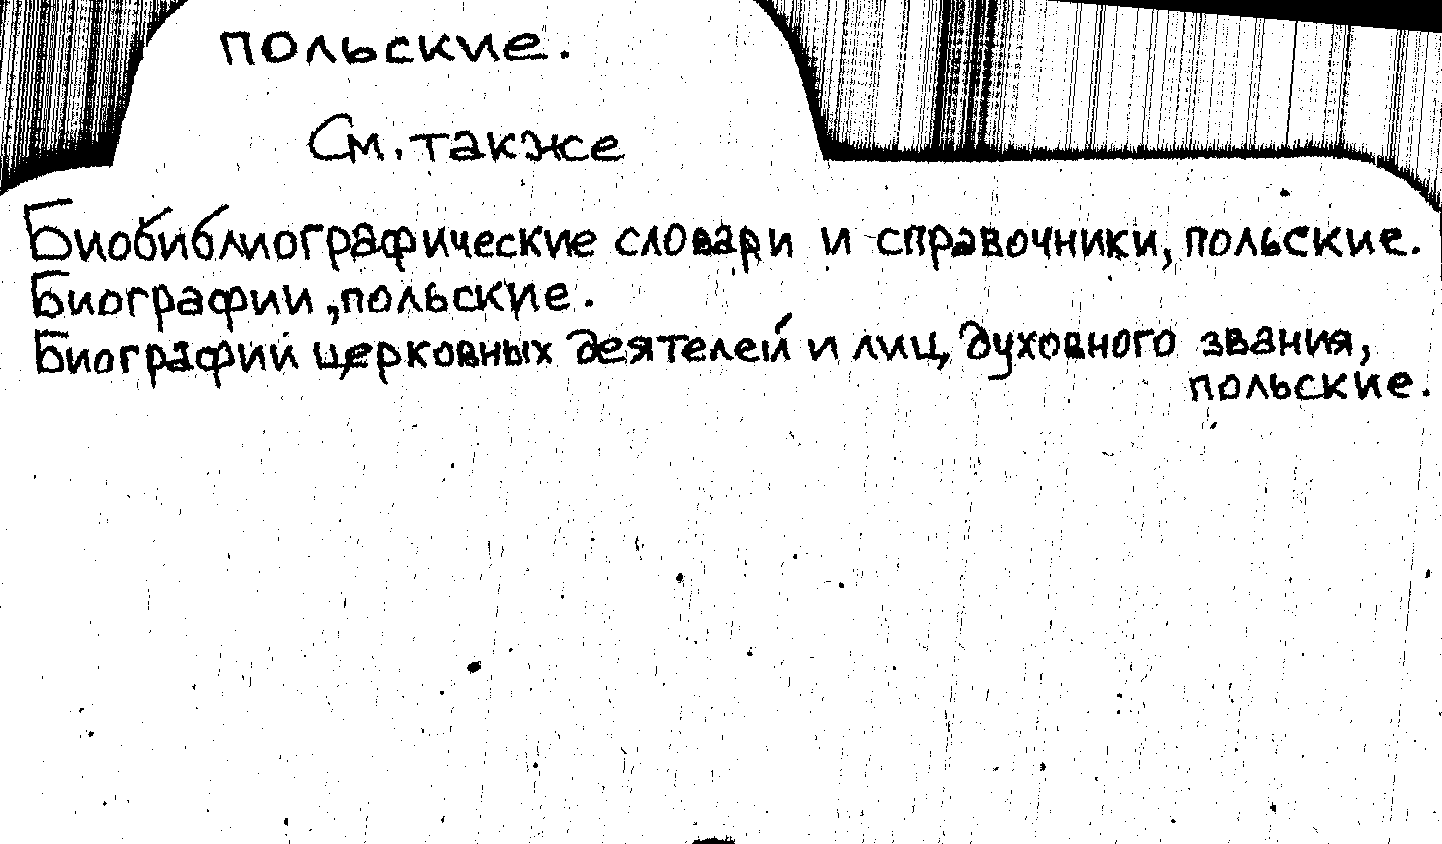 польские.
См. также
Биобиблиографические словари и справочники, польские.
Биографии, польские.
Биографии церковных деятелей и лиц духовного звания,
польские.